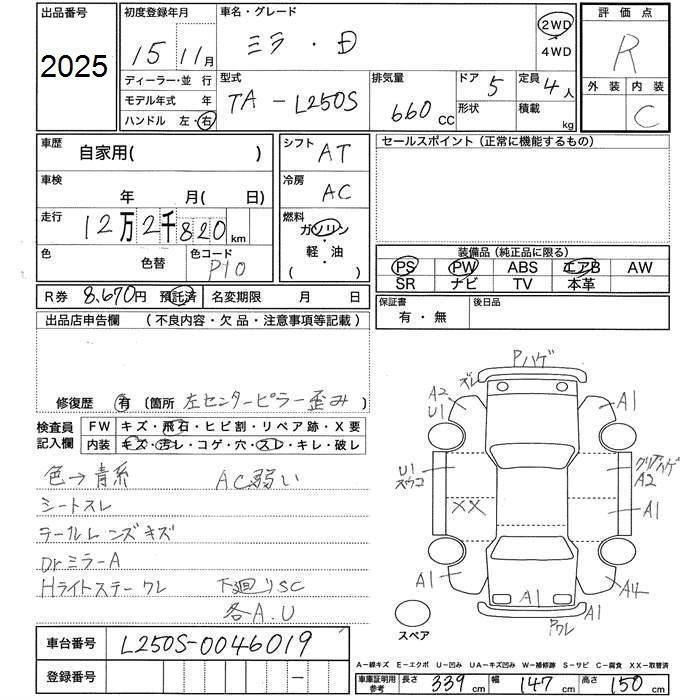 出品番号
2025
初度登録年月
15 年 11 月
車名・グレード
ミラ・D
2WD
4WD
評価点
R
ディーラー・並行
モデル年式 年
ハンドル 左・右
型式
TA-L250S
排気量
660 CC
ドア 5
形状
定員 4人
積載 kg
外装 内装
C
車歴
自家用( )
車検
年 月( 日)
走行
12万2千820 km
色
色替
色コード
P10
シフト AT
冷房 AC
燃料
ガソリン
軽・油
( )
セールスポイント(正常に機能するもの)
装備品(純正品に限る)
PS PW ABS エアB AW
SR ナビ TV 本革
R券 8,670円 預託済
名変期限 月 日
保証書
有・無
後日品
出品店申告欄 (不良内容・欠品・注意事項等記載)
修復歴 有 〔箇所 左センターピラー歪み 〕
検査員
記入欄
FW キズ・飛石・ヒビ割・リペア跡・X要
内装 キズ・汚レ・コゲ・穴・スレ・キレ・破レ
色→青系 AC弱い
シートスレ
テールレンズキズ
Drミラー A
Hライトステー ワレ 下廻りSC
各A.U
Pハゲ
ズレ
A2
U1
A1
U1
クリアハゲ
A2
XX
A1
A1
A4
A1
A1
Pワレ
スペア
車台番号 L250S-0046019
登録番号
A-線キズ E-エクボ U-凹み UA-キズ凹み W-補修跡 S-サビ C-腐食 XX-取替済
車庫証明用
参考
長さ 339 cm 幅 147 cm 高さ 150 cm